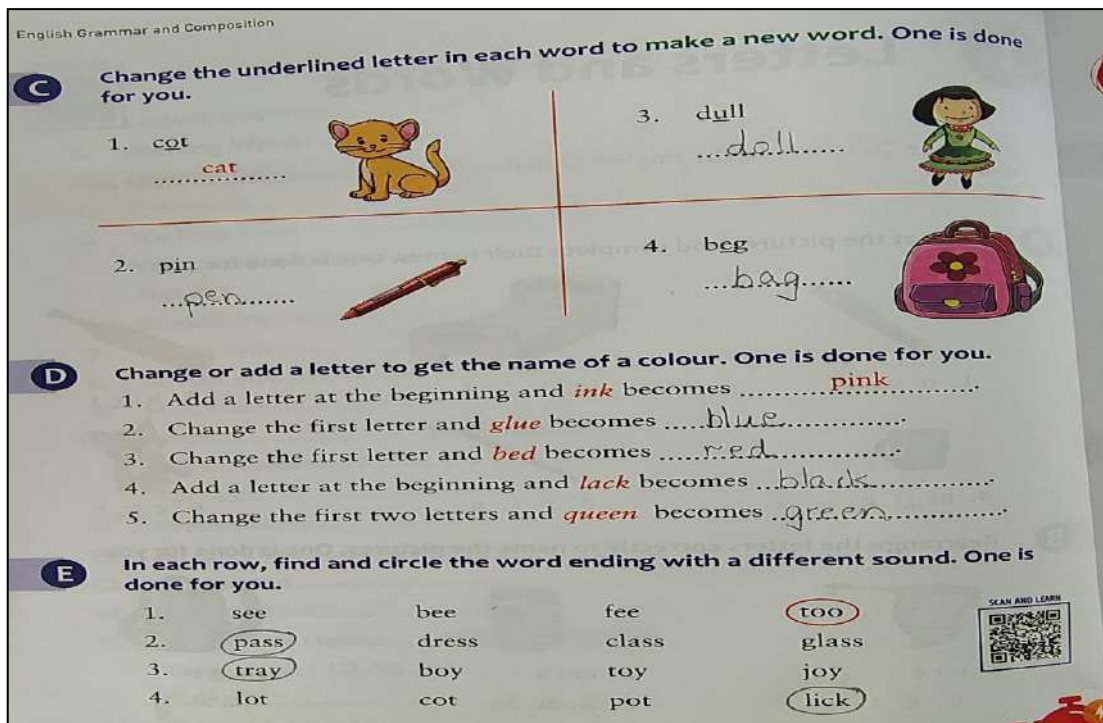 English Grammar and Composition
C Change the underlined letter in each word to make a new word. One is done
for you.
1. cot
cat
3. dull
doll
2. pin
pen
4. beg
bag
D Change or add a letter to get the name of a colour. One is done for you.
1. Add a letter at the beginning and ink becomes pink.
2. Change the first letter and glue becomes blue.
3. Change the first letter and bed becomes red.
4. Add a letter at the beginning and lack becomes black.
5. Change the first two letters and queen becomes green.
E In each row, find and circle the word ending with a different sound. One is
done for you.
SCAN AND LEARN
1. see bee fee too
2. pass dress class glass
3. tray boy toy joy
4. lot cot pot lick